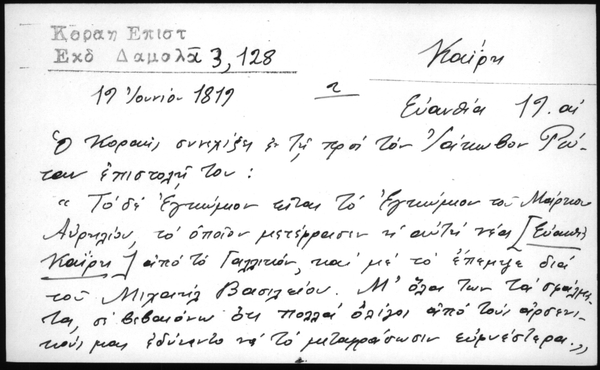 Κοραη Επιστ
Εκδ Δαμαλᾶ 3, 128
Καΐρη
19 Ἰουνίου 1819
Εὐανθία 19. αἰ
Ὁ Κοραῆς συνεχίζει ἐν τῇ πρός τόν Ἰάκωβον Ρώ-
ταν ἐπιστολῇ του :
« Τό δέ Ἐγκώμιον εἶναι τό Ἐγκώμιον τοῦ Μάρκου
Αὐρηλίου, τό ὁποῖον μετέφρασεν ἡ αὐτή νέα [Εὐανθία
Καΐρη] ἀπό τό Γαλλικόν, καί μέ τό ἔπεμψε διά
τοῦ Μιχαήλ Βασιλείου. Μ' ὅλα των τά σφάλμα-
τα, σέ βεβαιόνω ὅτι πολλά ὀλίγοι ἀπό τούς ἀρσενι-
κούς μας ἐδύναντο νά τό μεταφράσωσιν εὐφυέστερα.»